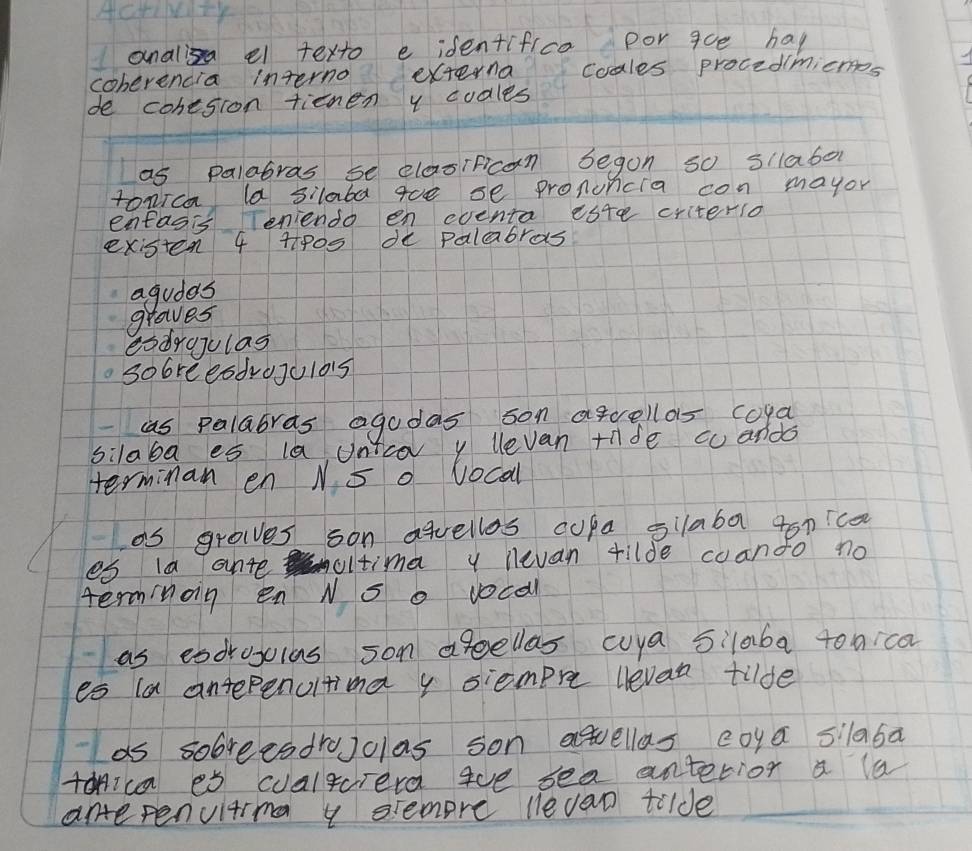 Activity
1 analisa el texto e identifica por que hay
coherencia interno externa cuales procedimientos
de cohesion tienen y cuales
Las palabras se clasifican segun so silaba
tonica la silaba que se pronuncia con mayor
enfasis Teniendo en cuenta este criterio
existen 4 tipos de palabras
• agudas
• graves
• esdrujulas
• sobreesdrujulas
- Las palabras agudas son aquellas cuya
silaba es la unica y llevan tilde cuando
terminan en N, S o Vocal
- Las graves son aquellas cuya silaba tonica
es la ante ultima y llevan tilde cuando no
terminan en N S o vocal
- Las esdrujulas son aquellas cuya silaba tonica
es la antepenultima y siempre llevan tilde
- Las sobreesdrujulas son aquellas coya silaba
tonica es cualquiera que sea anterior a la
antepenultima y siempre llevan tilde